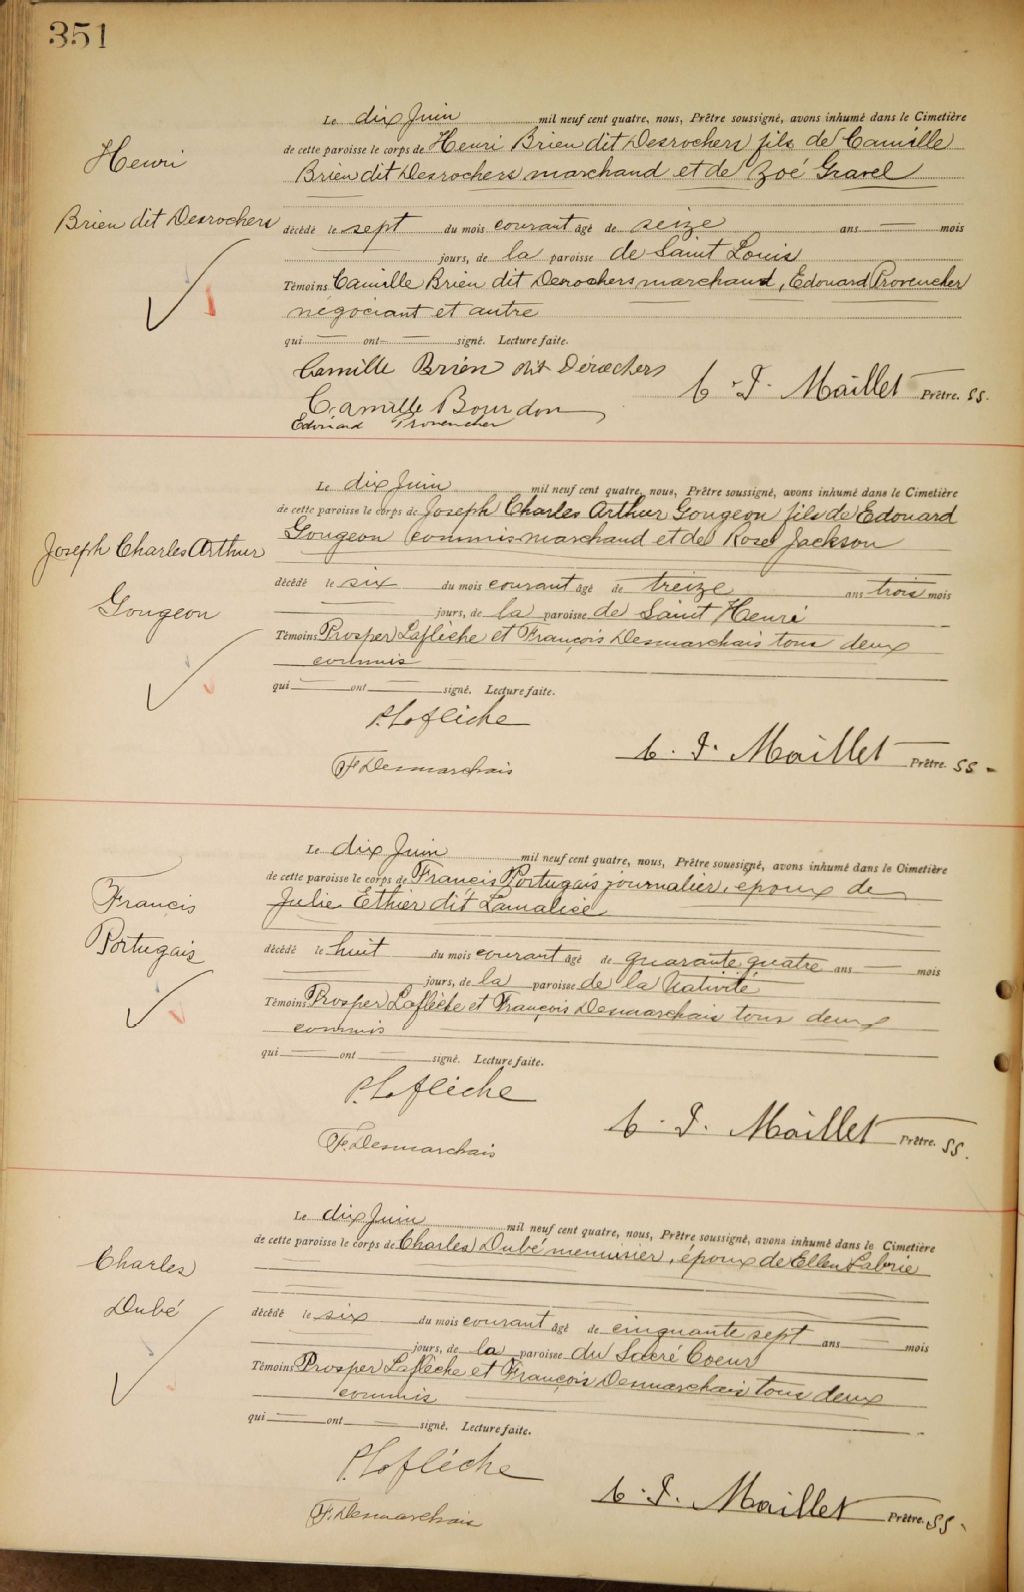 351
Le dix Juin mil neuf cent quatre, nous, Prêtre soussigné, avons inhumé dans le Cimetière
Henri
de cette paroisse le corps de Henri Brien dit Desrochers fils de Camille
Brien dit Desrochers marchand et de Zoé Gravel
Brien dit Desrochers
décédé le sept du mois courant âgé de seize ans — mois
jours, de la paroisse de Saint Louis
Témoins Camille Brien dit Desrochers marchand, Edouard Provencher
négociant et autre
qui — ont — signé. Lecture faite.
Camille Brien dit Dérochers
C. J. Maillet Prêtre. SS.
Camille Bourdon
Edouard Provencher
Le dix Juin mil neuf cent quatre, nous, Prêtre soussigné, avons inhumé dans le Cimetière
de cette paroisse le corps de Joseph Charles Arthur Gougeon fils de Edouard
Joseph Charles Arthur
Gougeon commis marchand et de Rose Jackson
décédé le six du mois courant âgé de treize ans trois mois
Gougeon
jours, de la paroisse de Saint Henri
Témoins Prosper Laflèche et François Desmarchais tous deux
commis
qui — ont — signé. Lecture faite.
P. Laflèche
C. J. Maillet Prêtre. SS -
F. Desmarchais
Le dix Juin mil neuf cent quatre, nous, Prêtre soussigné, avons inhumé dans le Cimetière
de cette paroisse le corps de Francis Portugais journalier, epoux de
Francis
Julie Ethier dit Lamalice
Portugais
décédé le huit du mois courant âgé de quarante quatre ans — mois
jours, de la paroisse de la Nativité
Témoins Prosper Laflèche et François Desmarchais tous deux
commis
qui — ont — signé. Lecture faite.
P. Laflèche
C. J. Maillet Prêtre. SS.
F. Desmarchais
Le dix Juin mil neuf cent quatre, nous, Prêtre soussigné, avons inhumé dans le Cimetière
de cette paroisse le corps de Charles Dubé menuisier, époux de Ellen Labrie
Charles
Dubé
décédé le six du mois courant âgé de cinquante sept ans — mois
jours, de la paroisse du Sacré Coeur
Témoins Prosper Laflèche et François Desmarchais tous deux
commis
qui — ont — signé. Lecture faite.
P. Laflèche
C. J. Maillet Prêtre. SS.
F. Desmarchais